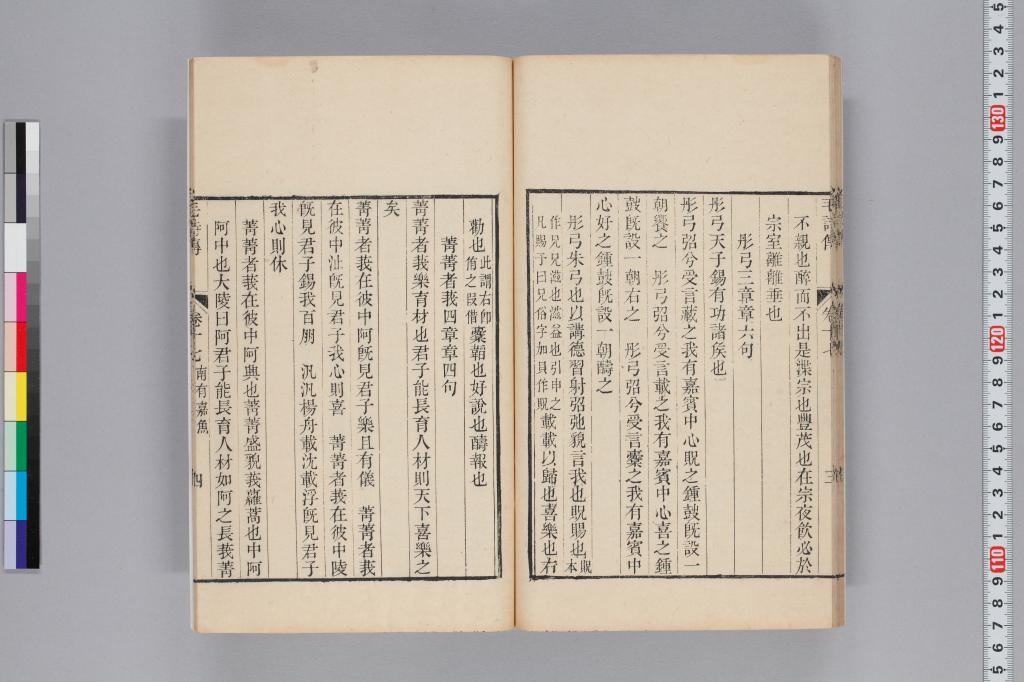 不親也醉而不出是渫宗也豐茂也在宗夜飮必於
宗室離離垂也
彤弓三章章六句
彤弓天子錫有功諸矦也
彤弓弨兮受言藏之我有嘉賓中心貺之鍾鼓旣設一
朝饗之　彤弓弨兮受言載之我有嘉賓中心喜之鍾
鼓旣設一朝右之　彤弓弨兮受言櫜之我有嘉賓中
心好之鍾鼓旣設一朝醻之
彤弓朱弓也以講德習射弨弛貌言我也貺賜也貺本
作兄兄滋也滋益也引申之凡賜予曰兄俗字加貝作貺載載以歸也喜樂也右
勸也此謂右卽侑之叚借櫜韜也好說也醻報也
菁菁者莪四章章四句
菁菁者莪樂育材也君子能長育人材則天下喜樂之
矣
菁菁者莪在彼中阿旣見君子樂且有儀　菁菁者莪
在彼中沚旣見君子我心則喜　菁菁者莪在彼中陵
旣見君子錫我百朋　汎汎楊舟載沈載浮旣見君子
我心則休
菁菁者莪在彼中阿興也菁菁盛貌莪蘿蒿也中阿
阿中也大陵曰阿君子能長育人材如阿之長莪菁
卷十七　南有嘉魚
四
130
120
110